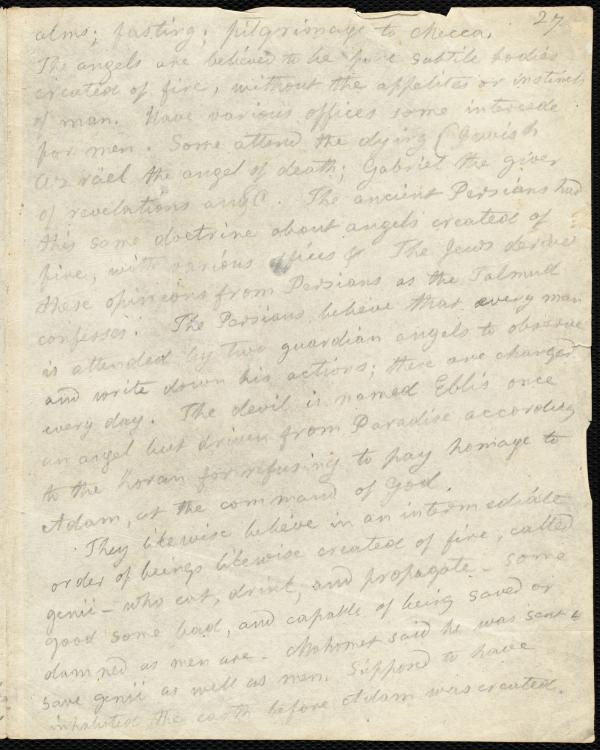 27
alms; fasting; pilgrimage to Mecca.
The angels are believed to be pure subtile bodies
created of fire, without the appetites or instinct
of man. Have various offices some intercede
for men. Some attend the dying (Jewish
Azrael the angel of death; Gabriel the giver
of revelations &c. The ancient Persians had
this same doctrine about angels created of
fire, with various offices &c The Jews derive
these opinions from Persians as the Talmud
confesses. The Persians believe that every man
is attended by two guardian angels to observe
and write down his actions; these are changed
every day. The devil is named Eblis once
an angel but driven from Paradise according
to the Koran for refusing to pay homage to
Adam, at the command of God.
They likewise believe in an intermediate
order of beings likewise created of fire, called
genii – who eat, drink, and propagate – some
good some bad, and capable of being saved or
damned as men are. Mahomet said he was sent to
save genii as well as men. Supposed to have
inhabited the earth before Adam was created.